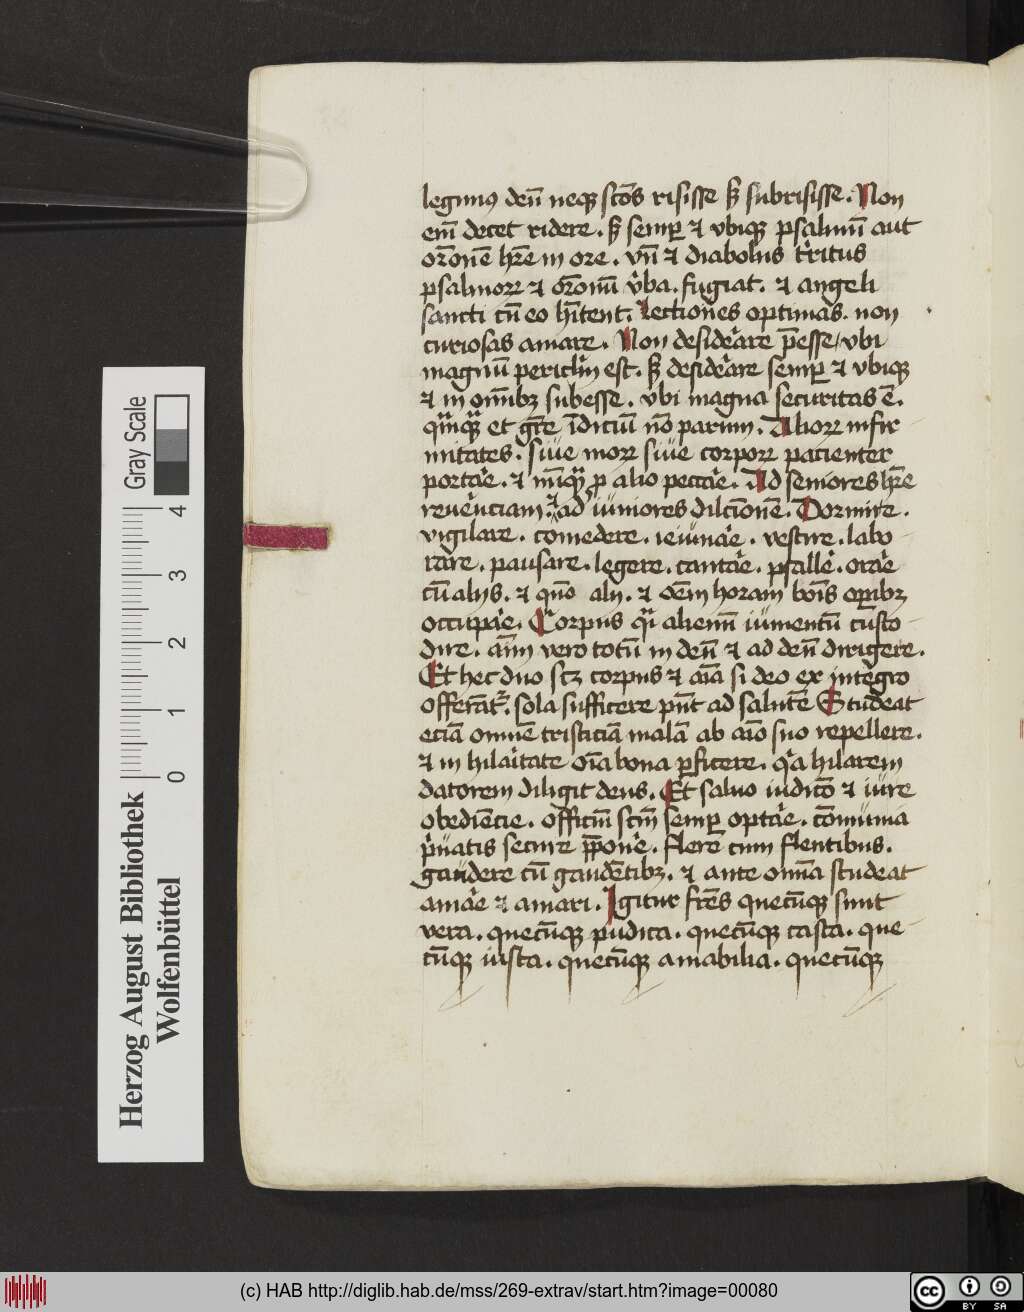 legimus deū neqꝫ sc̄os risisse sꝫ subrisisse. Non
em̄ decet ridere. sꝫ semꝑ ⁊ vbiqꝫ psalmū aut
or̄onē hr̄e in ore. vn̄ ⁊ diabolus t̾ritus
psalmoꝝ ⁊ or̄onū v̾ba. fugiat. ⁊ angeli
sancti cū eo hītent. Lectiones optimas. non
curiosas amare. Non desid̾are p̄esse / vbi
magnū periclm̄ est. sꝫ desid̾are semꝑ ⁊ vbiqꝫ
⁊ in om̄ibꝫ subesse. vbi magna securitas ē.
et gr̄e īdiciū nō parum. Alioꝝ infir
mitates. siue moꝝ siue corpoꝝ pacienter
portar̾e. ⁊ p alio peccar̾e. Ad seniores hr̄e
reuer̾nciam. ⁊ ad iuniores dilc̄ionē. Dormire.
vigilare. comedere. ieiunar̾e. vestire. labo
rare. pausare. legere. cantar̾e. psaller̾. orar̾e
cū alijs. ⁊ quō alij. ⁊ oēm horam bonīs oꝑibꝫ
occupar̾e. Corpus qͣi alienū iumentū custo
dire. aīm vero totū in deū ⁊ ad deū dirigere.
Et hec duo scꝫ corpus ⁊ aīa si deo ex integro
offerāt̾. sola sufficere pn̄t ad salutē Studeat
eciā omnē tristiciā malā ab aīo suo repellere.
⁊ in hilar̾itate oīa bona ꝑficere. qͣa hilarem
datorem diligit deus. Et saluo iudicō ⁊ iure
obediēcie. officiū scm̄ semꝑ optar̾e. cōmunia
p̾uatis secure p̄poner̾e. flere cum flentibus.
gaudere cū gaudētibꝫ. ⁊ ante omīa studeat
amar̾e ⁊ amari. Igitur fr̄es quecūqꝫ sunt
vera. quecūqꝫ pudica. quecūqꝫ casta. que
cūqꝫ iusta. quecūqꝫ amabilia. quecūqꝫ
Herzog August Bibliothek
Wolfenbüttel
0 1 2 3 4
Gray Scale
(c) HAB http://diglib.hab.de/mss/269-extrav/start.htm?image=00080
cc BY SA